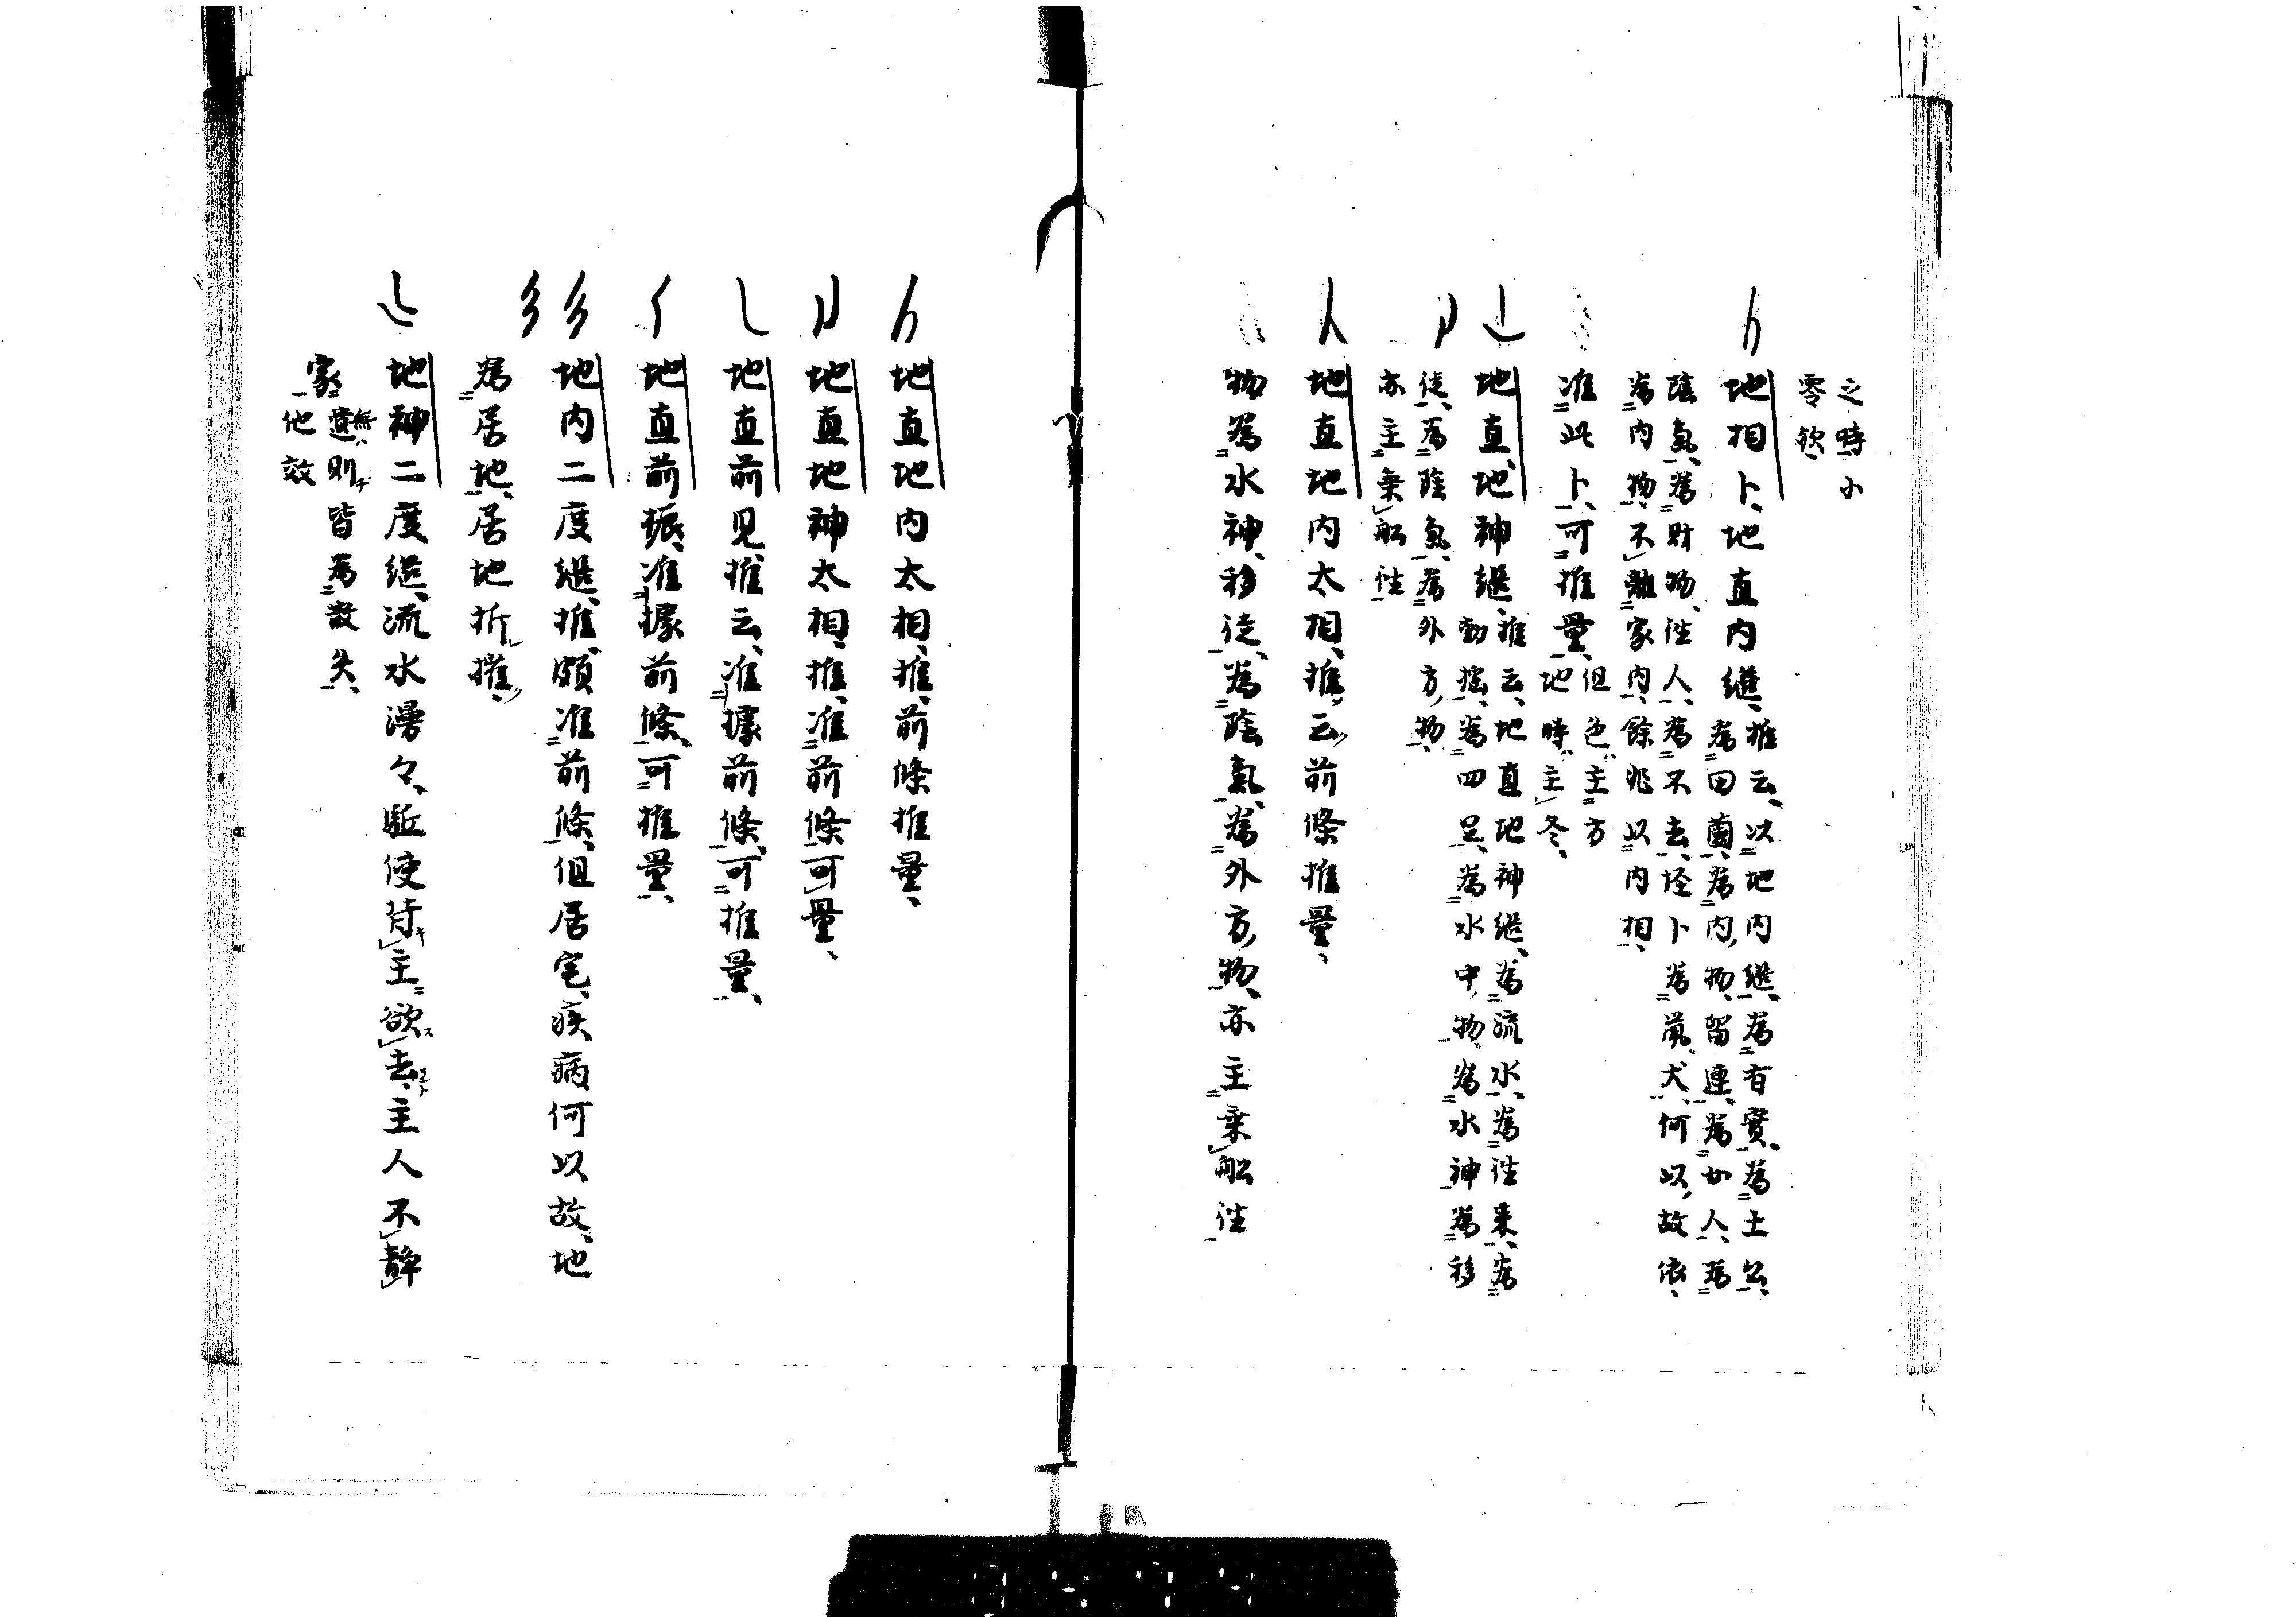 之時小
零欤
地相卜、地直内継、推云、以地内継、為有實、為土公、
為田薗、為内物、留連、為女人、為
陰氣、為財物、往人、為不去、怪卜為鼠犬、何以故依、
為内物、不離家内、餘兆以内相、
准此卜、可推量、但色、主方
地時、主冬、
地直、地神継、推云、地直地神継、為流水、為往来、為
動揺、為四足、為水中物、為水神為移
徒、為陰氣、為外方物、
亦主乗船往
地直地内太相、推云、前條推量、
物為水神、移徒、為陰氣、為外方、物、亦主乗船往
地直地内太相、推、前條推量、
地直地神太相、推、准前條、可量、
地直前見、推云、准據前條、可推量、
地直前振、准據前條、可推量、
地内二度継、推、頗准前條、但居宅、疾病何以故、地
為居地、居地折摧、
地神二度継、流水湯々、駈使背主欲去、主人不静
家 無遺則皆為散失、
他效